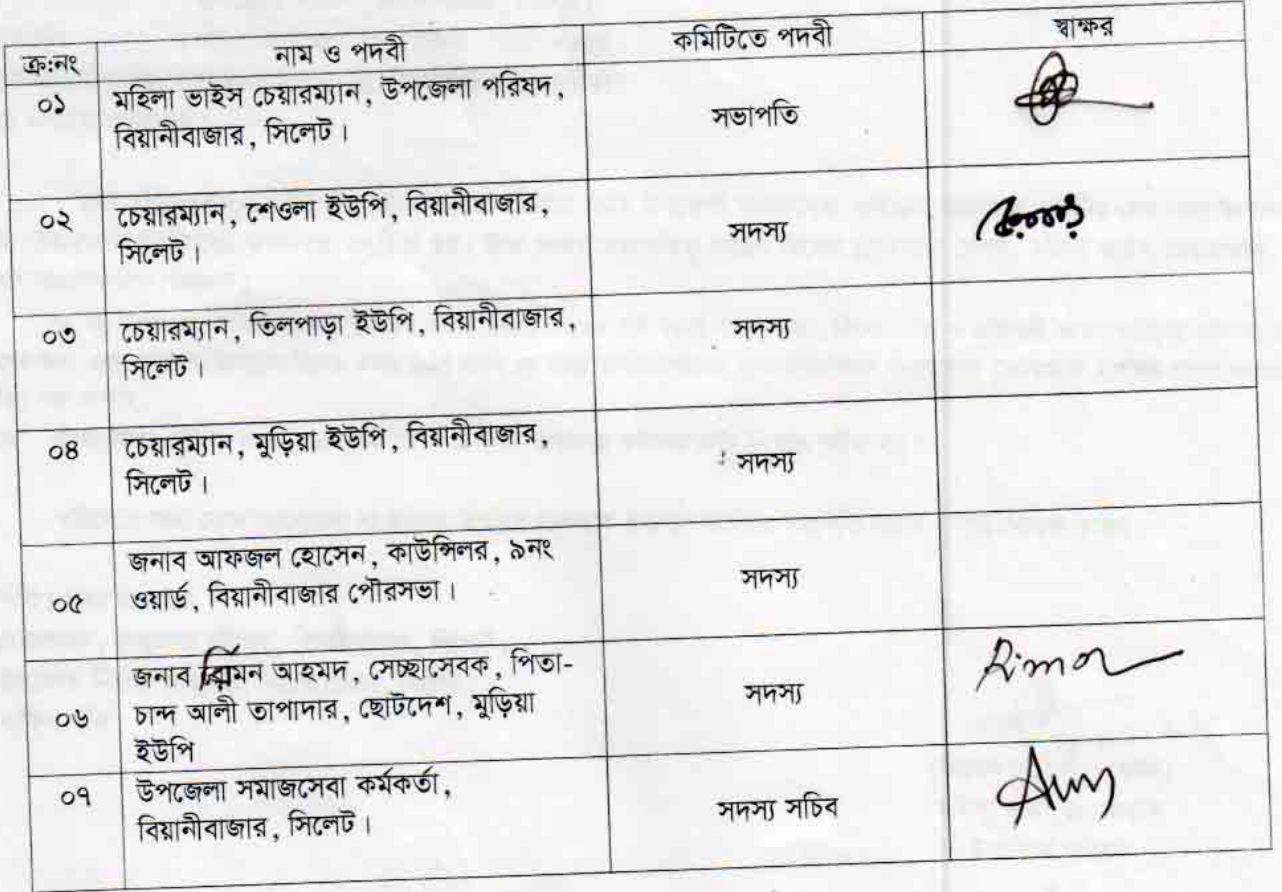 ক্র:নং নাম ও পদবী কমিটিতে পদবী স্বাক্ষর
০১ মহিলা ভাইস চেয়ারম্যান, উপজেলা পরিষদ, সভাপতি
বিয়ানীবাজার, সিলেট।
০২ চেয়ারম্যান, শেওলা ইউপি, বিয়ানীবাজার, সদস্য
সিলেট।
০৩ চেয়ারম্যান, তিলপাড়া ইউপি, বিয়ানীবাজার, সদস্য
সিলেট।
০৪ চেয়ারম্যান, মুড়িয়া ইউপি, বিয়ানীবাজার, সদস্য
সিলেট।
জনাব আফজল হোসেন, কাউন্সিলর, ৯নং
০৫ ওয়ার্ড, বিয়ানীবাজার পৌরসভা। সদস্য
জনাব রিমন আহমদ, সেচ্ছাসেবক, পিতা-
০৬ চান্দ আলী তাপাদার, ছোটদেশ, মুড়িয়া সদস্য Rimon
ইউপি
০৭ উপজেলা সমাজসেবা কর্মকর্তা, সদস্য সচিব
বিয়ানীবাজার, সিলেট।